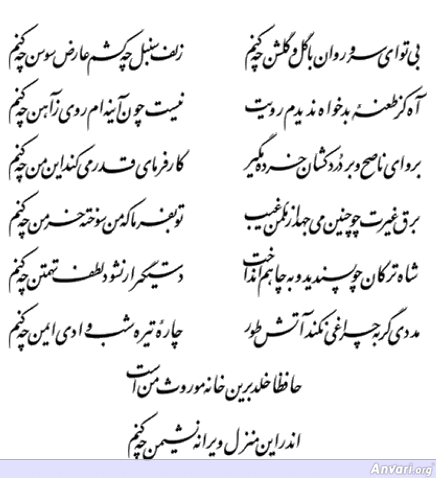 بی تو ای سرو روان با گل و گلشن چه کنم
زلف سنبل چه کشم عارض سوسن چه کنم
آه کز طعنهٔ بدخواه ندیدم رویت
نیست چون آینه‌ام روی ز آهن چه کنم
برو ای ناصح و بر دردکشان خرده مگیر
کارفرمای قدر می‌کند این من چه کنم
برق غیرت چو چنین می‌جهد از مکمن غیب
تو بفرما که من سوخته خرمن چه کنم
شاه ترکان چو پسندید و به چاهم انداخت
دستگیر ار نشود لطف تهمتن چه کنم
مددی گر به چراغی نکند آتش طور
چارهٔ تیره شب وادی ایمن چه کنم
حافظا خلد برین خانه موروث من است
اندر این منزل ویرانه نشیمن چه کنم
Anvari.org